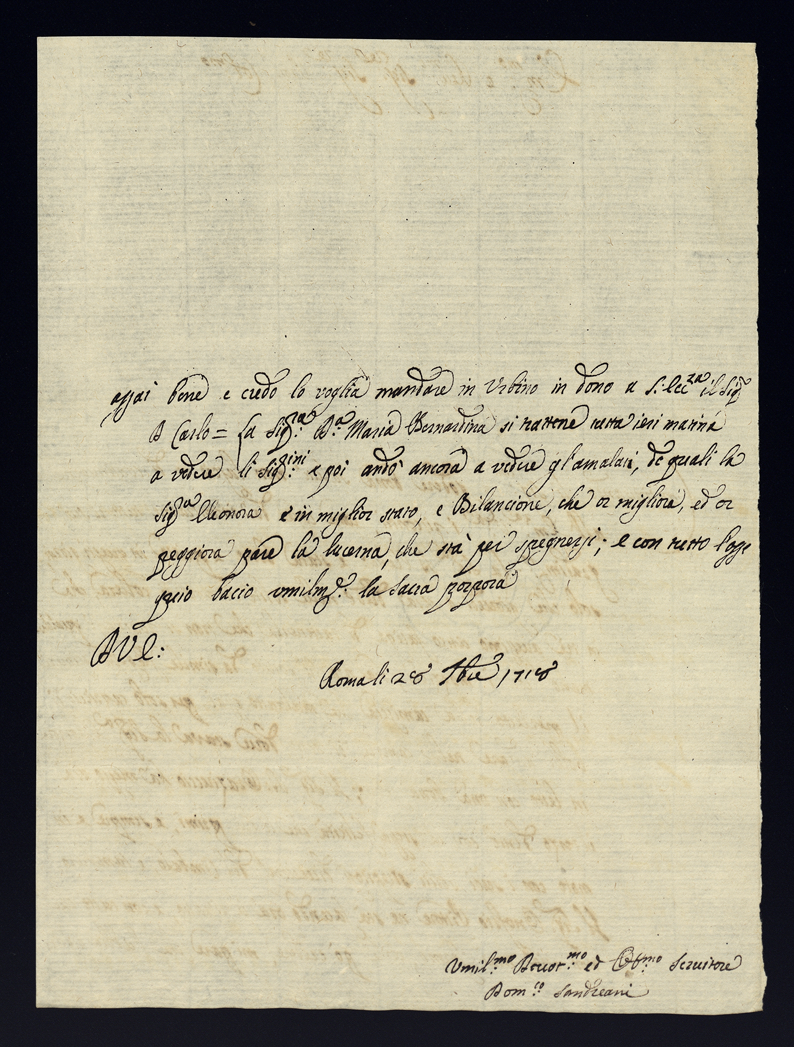 assai bene e credo lo voglia mandare in Urbino in dono a S. Ecc.za il Sig.r
D Carlo = La Sig.ra D.a Maria Bernardina si trattene tutta ieri matina
a vedere li Sig.ini e poi andò ancora a vedere gl'amalati, de quali la
Sig.ra Eleonora è in miglior stato, e Bilancione, che or migliora, ed or
peggiora pare la lucerna, che stà per spegnersi; e con tutto l'osse
quio bacio umilm.e la Sacra porpora
D V E:
Roma li 28 Xbre 1718
Umil.mo Devot.mo ed Obb.mo Servitore
Dom.co Sandreani